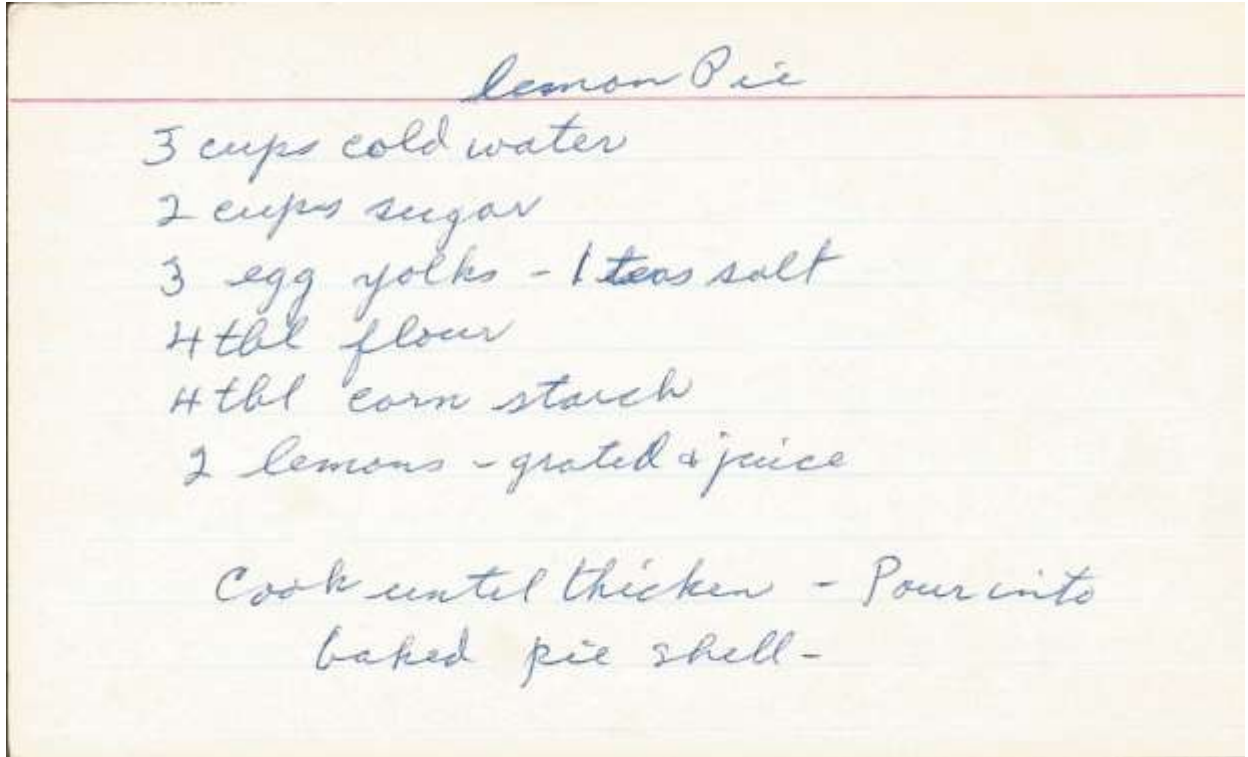 lemon Pie
3 cups cold water
2 cups sugar
3 egg yolks - 1 teas salt
4 tbl flour
4 tbl corn starch
2 lemons - grated & juice
Cook until thicken - Pour into
baked pie shell -